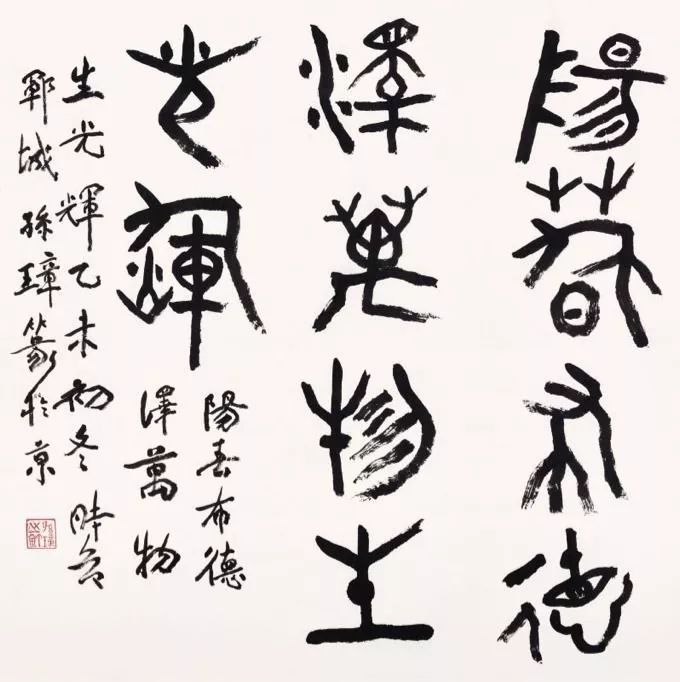 陽春布德
澤萬物生
光輝
陽春布德
澤萬物
生光輝乙未初冬時
鄆城孫璋篆於京